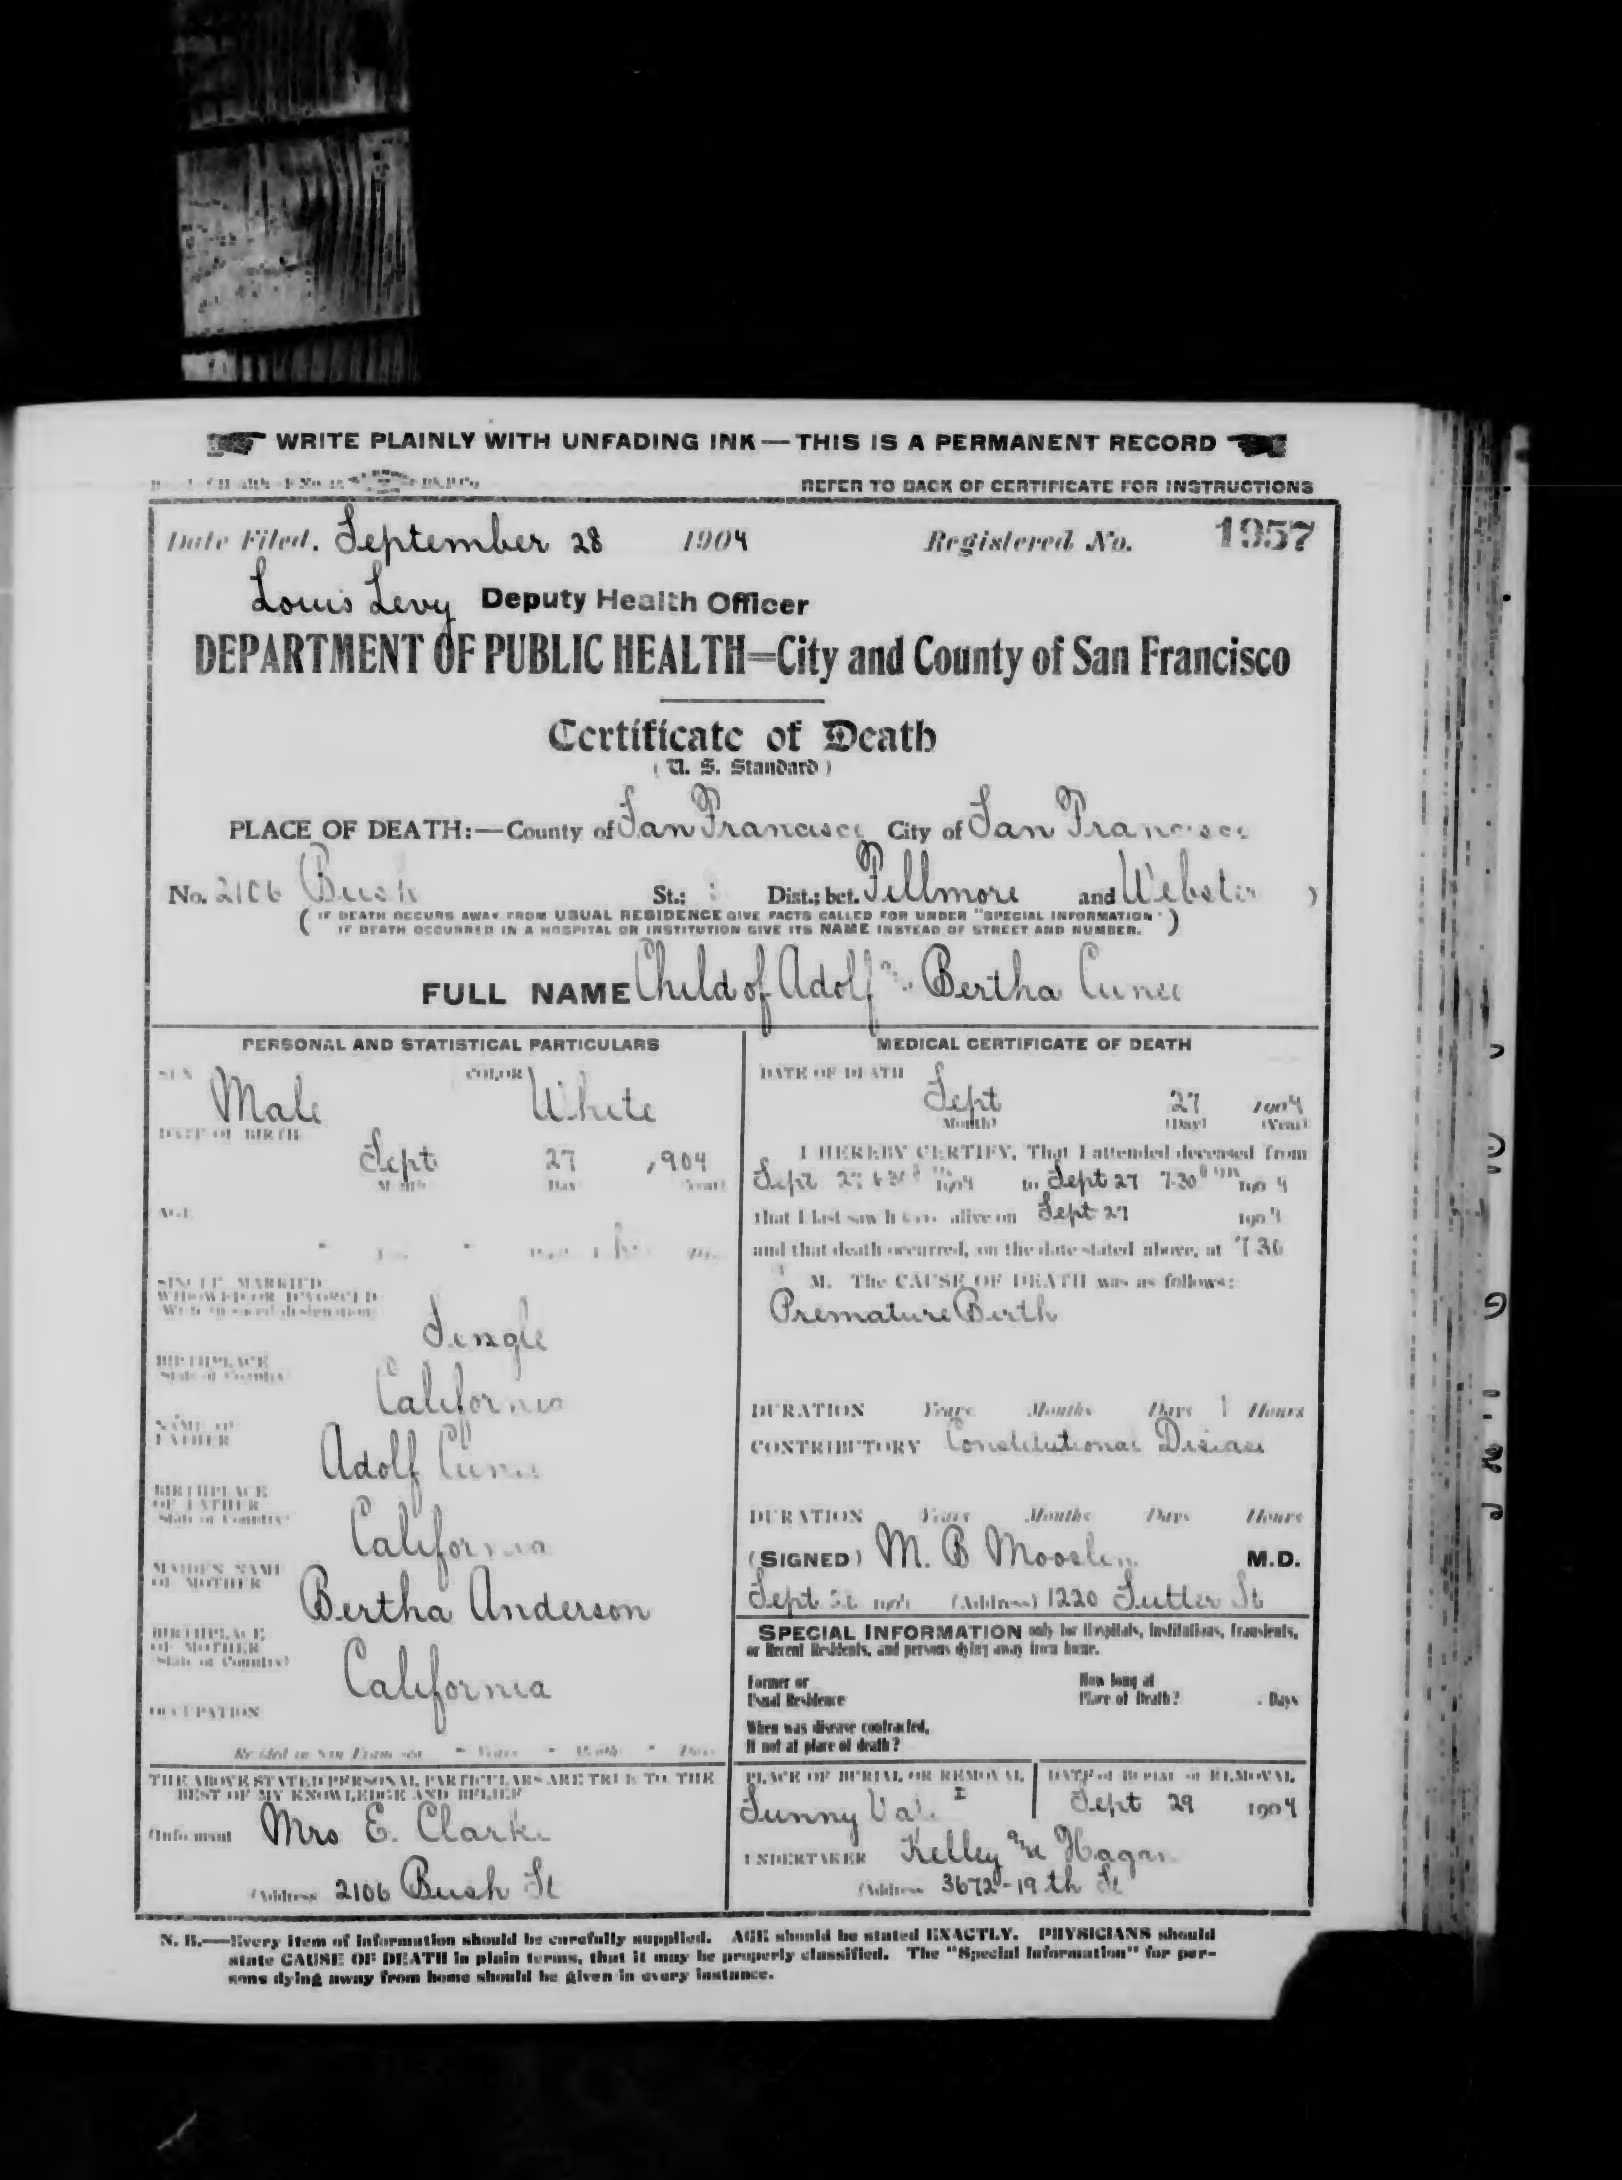 WRITE PLAINLY WITH UNFADING INK — THIS IS A PERMANENT RECORD
REFER TO BACK OF CERTIFICATE FOR INSTRUCTIONS
Date Filed, September 28 1904 Registered No. 1957
Louis Levy Deputy Health Officer
DEPARTMENT OF PUBLIC HEALTH=City and County of San Francisco
Certificate of Death
(U. S. Standard)
PLACE OF DEATH:—County of San Francisco City of San Francisco
No. 2106 Bush St.; Dist.; bet. Fillmore and Webster )
( IF DEATH OCCURS AWAY FROM USUAL RESIDENCE GIVE FACTS CALLED FOR UNDER "SPECIAL INFORMATION" )
IF DEATH OCCURRED IN A HOSPITAL OR INSTITUTION GIVE ITS NAME INSTEAD OF STREET AND NUMBER.
FULL NAME Child of Adolf Bertha
PERSONAL AND STATISTICAL PARTICULARS
SEX Male COLOR White
DATE OF BIRTH
Sept 27 1904
Month Day Year
AGE
SINGLE, MARRIED
WIDOWED OR DIVORCED
Single
BIRTHPLACE
State or Country
California
NAME OF
FATHER
Adolf
BIRTHPLACE
OF FATHER
State or Country
California
MAIDEN NAME
OF MOTHER
Bertha Anderson
BIRTHPLACE
OF MOTHER
State or Country
California
OCCUPATION
Resided in San Francisco Years Months Days
THE ABOVE STATED PERSONAL PARTICULARS ARE TRUE TO THE
BEST OF MY KNOWLEDGE AND BELIEF
(Informant Mrs E. Clarke
(Address 2106 Bush St
MEDICAL CERTIFICATE OF DEATH
DATE OF DEATH
Sept 27 1904
(Month) (Day) (Year)
I HEREBY CERTIFY, That I attended deceased from
Sept 27 1904 to Sept 27 7-30 1904
that I last saw h alive on Sept 27 1904
and that death occurred, on the date stated above, at 7 30
M. The CAUSE OF DEATH was as follows:
Premature Birth
DURATION Years Months Days 1 Hours
CONTRIBUTORY Constitutional Disease
DURATION Years Months Days Hours
(SIGNED) M. B M.D.
Sept 1904 (Address) 1220 Sutter St
SPECIAL INFORMATION only for Hospitals, Institutions, Transients,
or Recent Residents, and persons dying away from home.
Former or
Usual Residence
How long at
Place of Death? Days
When was disease contracted,
If not at place of death?
PLACE OF BURIAL OR REMOVAL DATE of Burial or REMOVAL
Sunny Vale Sept 29 1904
UNDERTAKER Kelley and Hagan
(Address 3672-19th St
N. B.—Every item of information should be carefully supplied. AGE should be stated EXACTLY. PHYSICIANS should
state CAUSE OF DEATH in plain terms, that it may be properly classified. The "Special Information" for per-
sons dying away from home should be given in every instance.